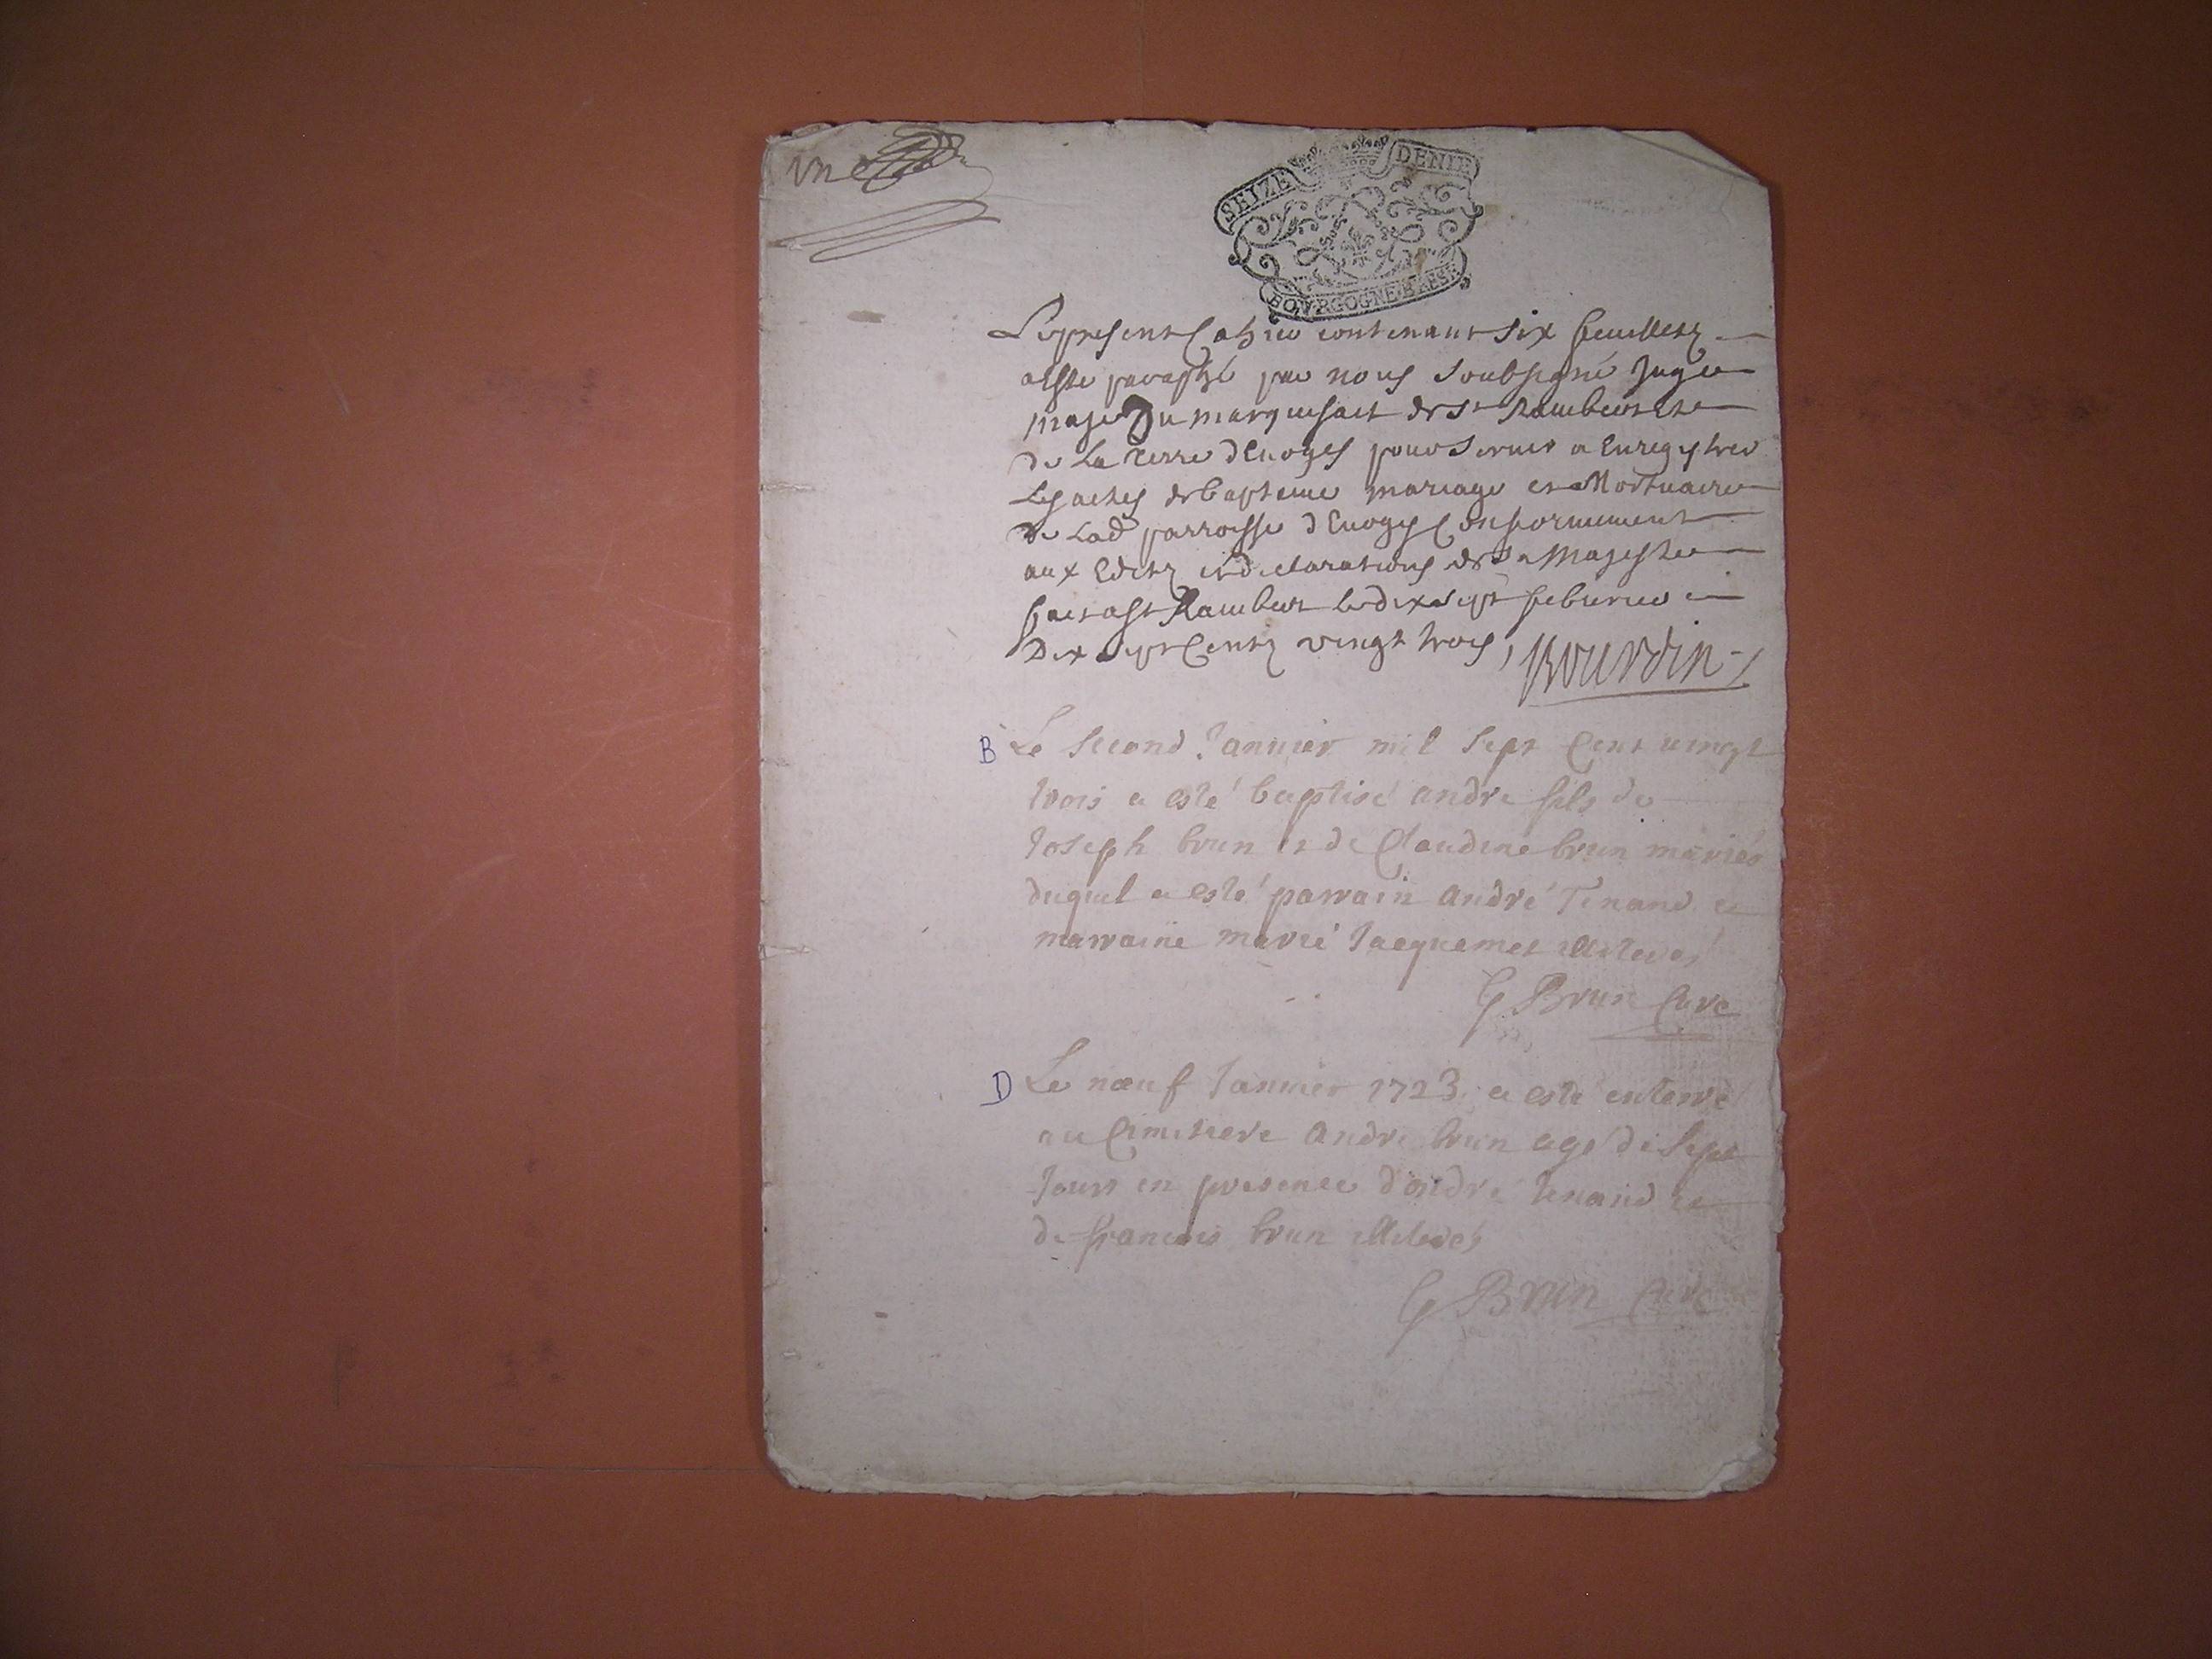 une
SEIZE DENIE
BOURGOGNE BRESS
Le present Cahier contenant six feuilletz
a esté paraphé par nous soubsigné Juge
maje du marquisait de St Rambert et
de La Terre d'Evoges pour servir a Enregistrer
Les actes de baptesme mariage et Mortuaire
de Lad parroisse d'Evoges Conformement
aux Editz et declarations de sa Majesté
fait a St Rambert le dix sept febvrier
Dix sept Centz vingt trois, Bourdin
B Le second Janvier mil sept Cent vingt
trois a esté baptisé andre fils de
Joseph brun et de Claudine brun mariés
duquel a esté parrain andré Tenand et
marraine marie Jacquemet illiterés
G Brun Curé
D Le neuf Janvier 1723 a esté enterré
au Cimetiere andre brun agé de sept
Jours en presence d'andré tenand et
de francois brun illiterés
G Brun Curé